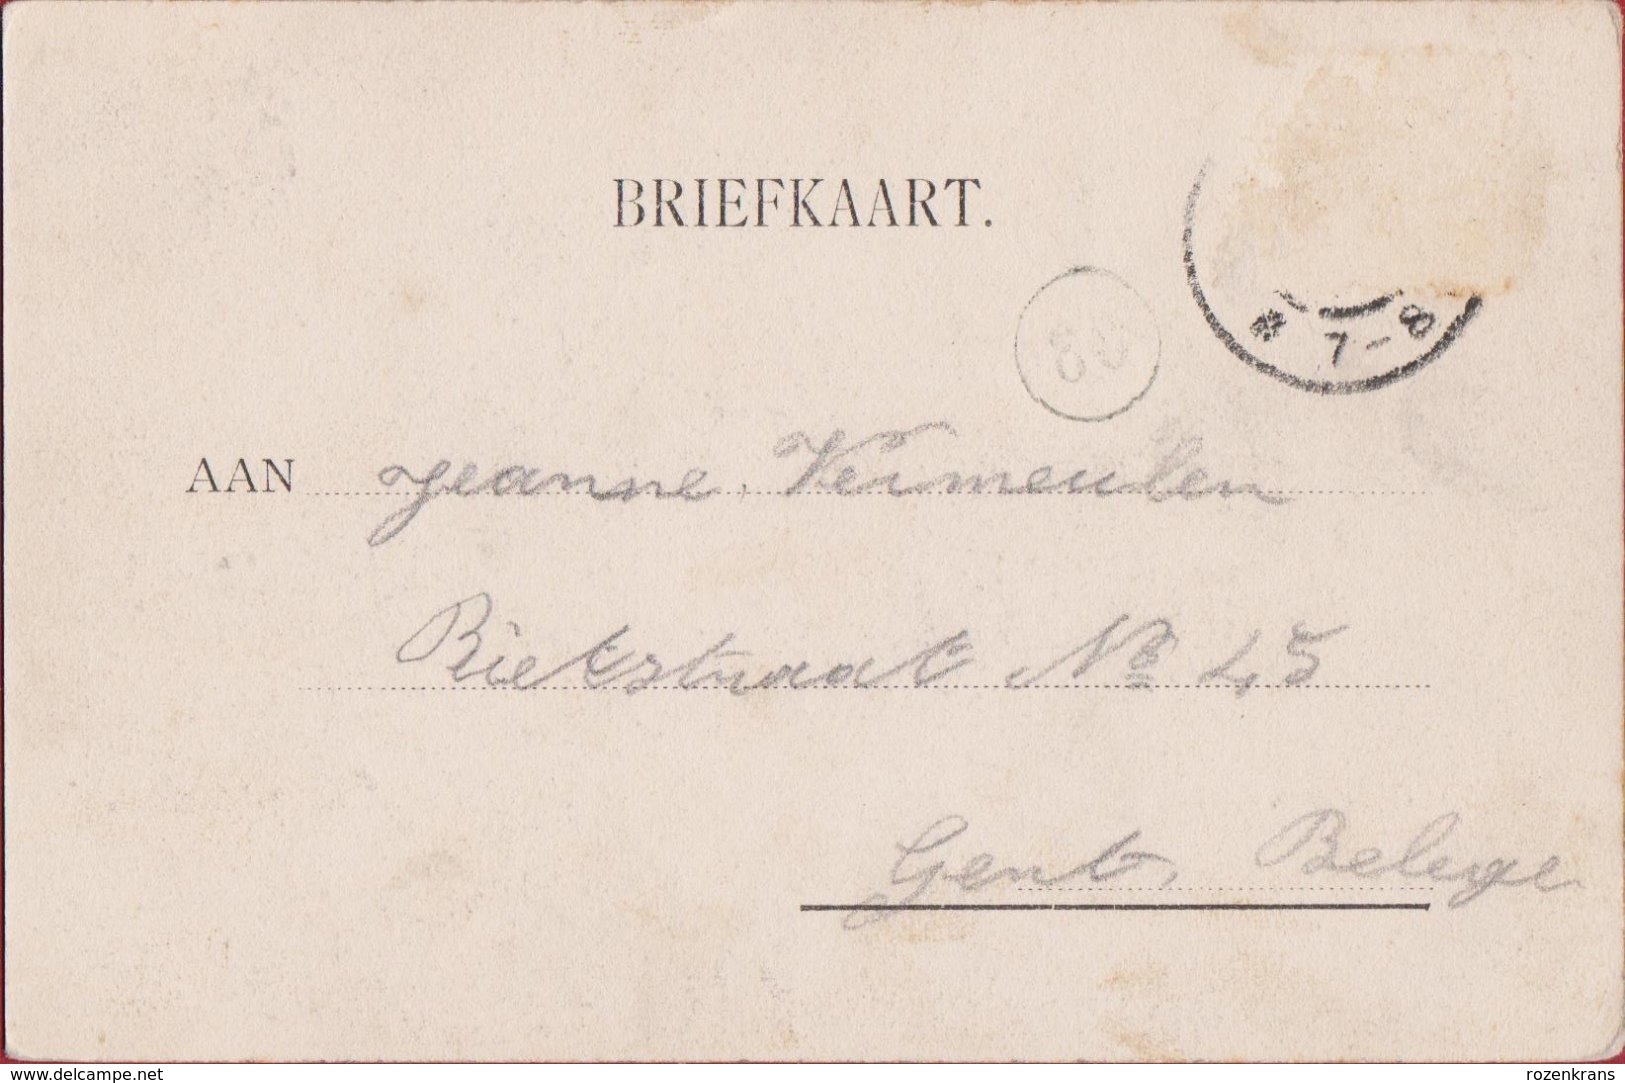 BRIEFKAART.
* 7-8
33
AAN Jeanne Vermeulen
Rietstraat No 45
Gent, Belege
www.delcampe.net
rozenkrans